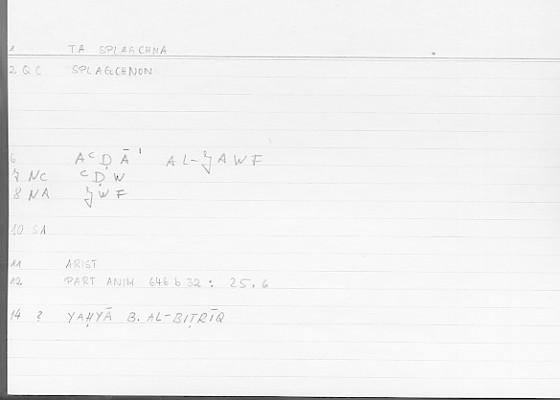 1 TA SPLAGCHNA
2 QC SPLAGCENON
6 AᶜḌĀʾ AL-ǦAWF
7 NC ᶜḌW
8 NA ǦWF
10 SA
11 ARIST
12 PART ANIM 646 b 32 : 25.6
14 ? YAḤYĀ B. AL-BIṬRĪQ